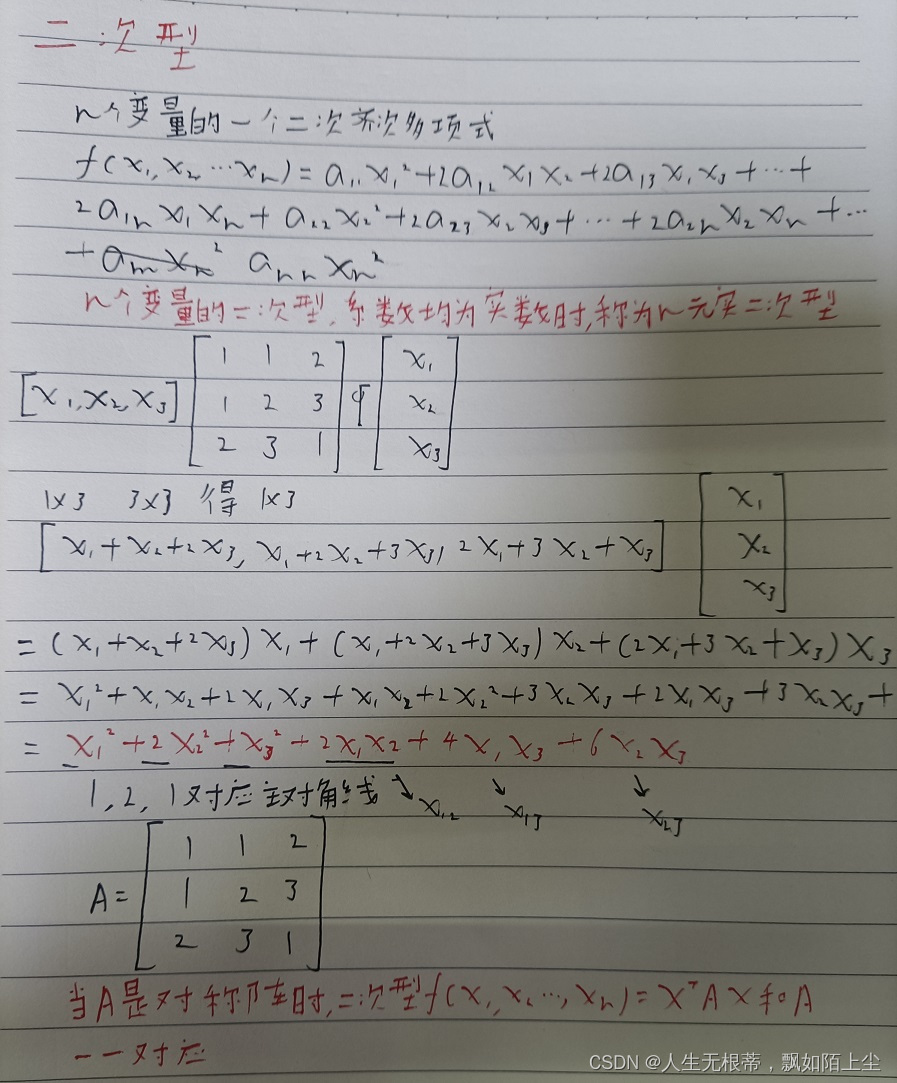 二次型
n个变量的一个二次齐次多项式
f(x₁,x₂…xₙ)=a₁₁x₁²+2a₁₂x₁x₂+2a₁₃x₁x₃+…+
2a₁ₙx₁xₙ+a₂₂x₂²+2a₂₃x₂x₃+…+2a₂ₙx₂xₙ+…
+aₙₙxₙ²
n个变量的二次型,系数均为实数时,称为n元实二次型
[x₁,x₂,x₃] [1 1 2; 1 2 3; 2 3 1] [x₁; x₂; x₃]
1×3 3×3 得 1×3
[x₁+x₂+2x₃, x₁+2x₂+3x₃, 2x₁+3x₂+x₃] [x₁; x₂; x₃]
=(x₁+x₂+2x₃)x₁+(x₁+2x₂+3x₃)x₂+(2x₁+3x₂+x₃)x₃
=x₁²+x₁x₂+2x₁x₃+x₁x₂+2x₂²+3x₂x₃+2x₁x₃+3x₂x₃+
=x₁²+2x₂²+x₃²+2x₁x₂+4x₁x₃+6x₂x₃
1,2,1对应主对角线 ↘x₁₂ ↘x₁₃ ↓x₂₃
A=[1 1 2; 1 2 3; 2 3 1]
当A是对称阵时,二次型f(x₁,x₂…,xₙ)=xᵀAx和A
一一对应
CSDN @人生无根蒂，飘如陌上尘